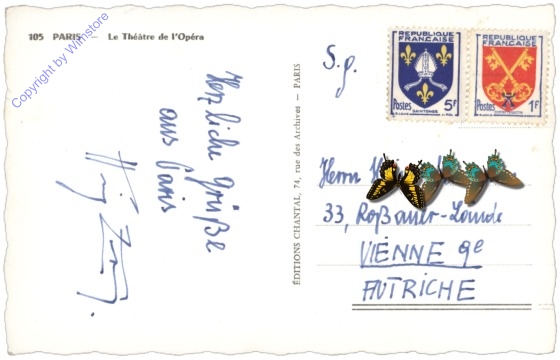 105 PARIS — Le Théâtre de l'Opéra
Copyright by Winstore
Herzliche Grüße
aus Paris
ÉDITIONS CHANTAL, 74, rue des Archives — PARIS
S.g.
REPUBLIQUE
FRANÇAISE
Postes 5F
SAINTONGE
REPUBLIQUE
FRANÇAISE
Postes 1F
Herrn
33, Roßauer-Lände
VIENNE 9e
AUTRICHE